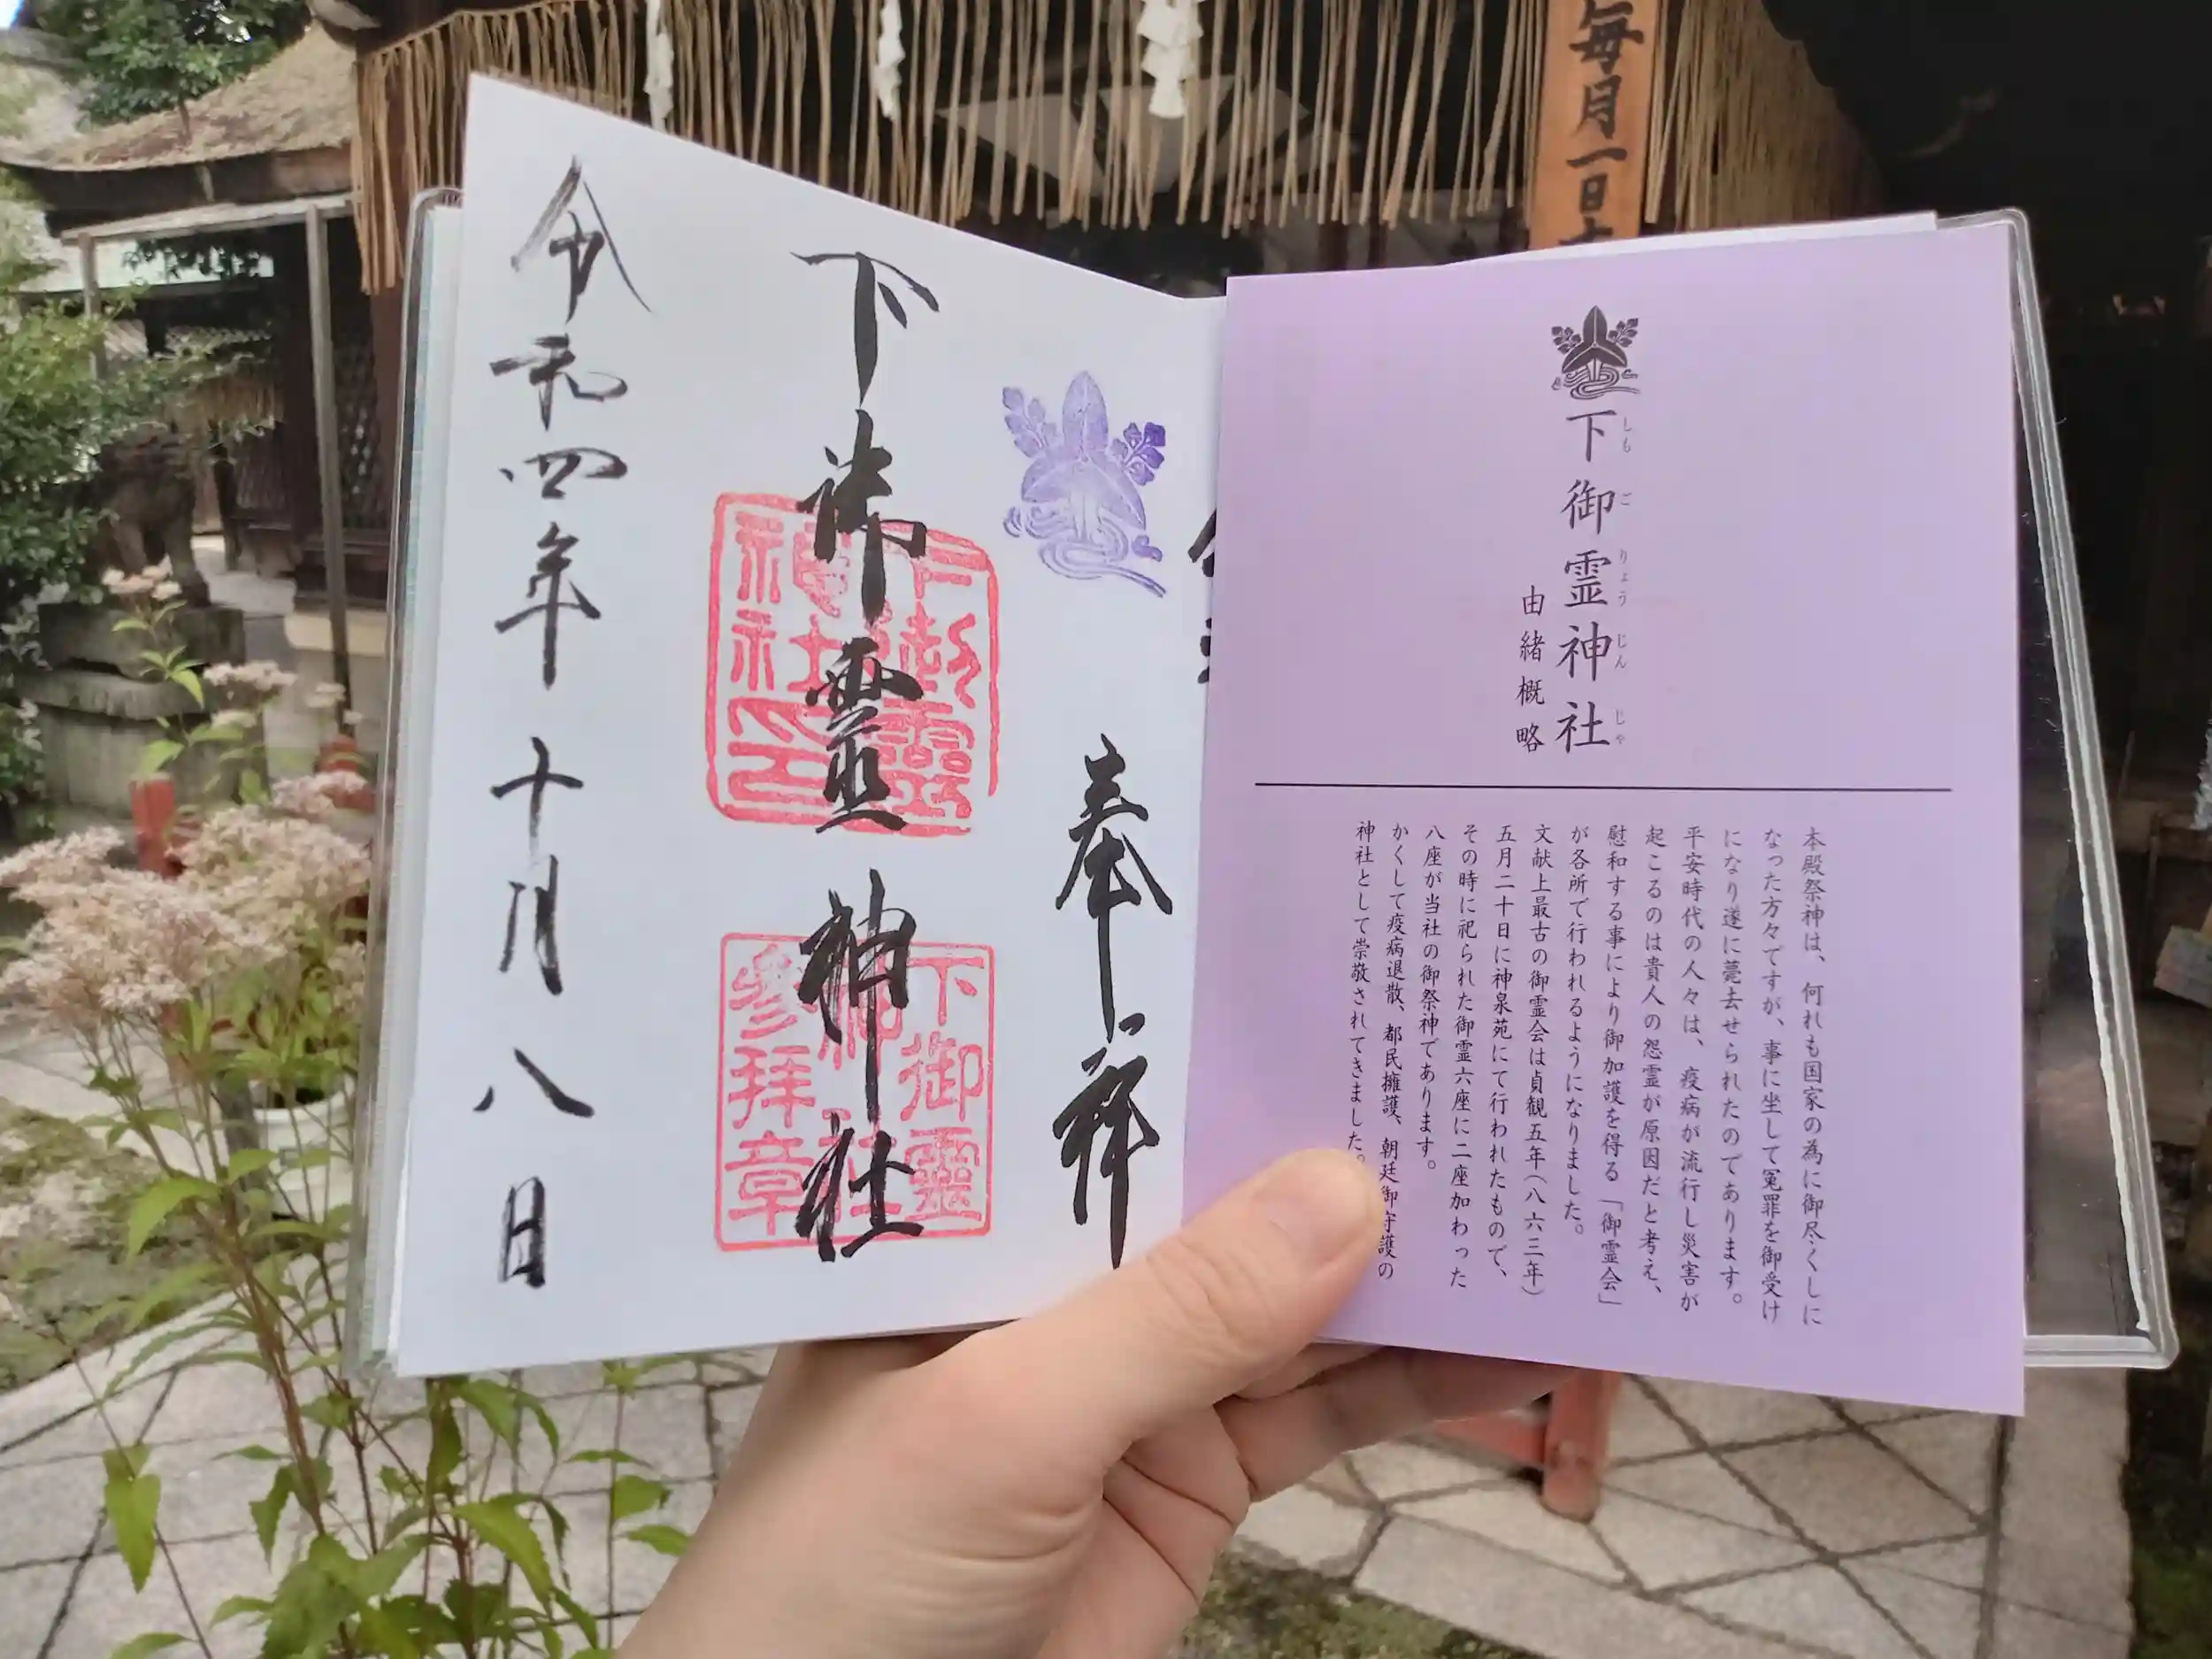 毎月一日
奉拝
下御靈神社
令和四年十月八日
下御靈神社印
下御靈神社参拝章
下御霊神社
しもごりょうじんじゃ
由緒概略
本殿祭神は、何れも国家の為に御尽くしに
なった方々ですが、事に坐して冤罪を御受け
になり遂に薨去せられたのであります。
平安時代の人々は、疫病が流行し災害が
起こるのは貴人の怨霊が原因だと考え、
慰和する事により御加護を得る「御霊会」
が各所で行われるようになりました。
文献上最古の御霊会は貞観五年(八六三年)
五月二十日に神泉苑にて行われたもので、
その時に祀られた御霊六座に二座加わった
八座が当社の御祭神であります。
かくして疫病退散、都民擁護、朝廷御守護の
神社として崇敬されてきました。